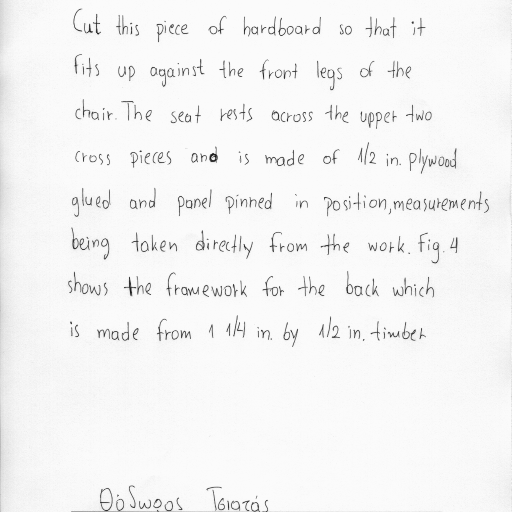 Cut this piece of hardboard so that it
fits up against the front legs of the
chair. The seat rests across the upper two
cross pieces and is made of 1/2 in. plywood
glued and panel pinned in position, measurements
being taken directly from the work. Fig. 4
shows the framework for the back which
is made from 1 1/4 in. by 1/2 in. timber
Θόδωρος Τσιατάς